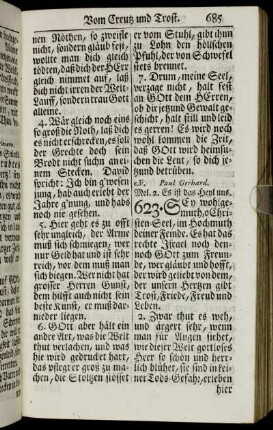 Vom Creutz und Trost. 685
nen Nöthen, so zweifle
nicht, sondern gläub fest,
wollte man dich gleich
tödten, daß dich der HErr
gleich nimmet auf, laß
dich nicht irren der Welt
Lauff, sondern trau Gott
alleine.
4. Wär gleich noch eins
so groß die Noth, laß dich
es nicht erschrecken, es ist
der Grechte doch sein
Brodt nicht suchn an ei-
nem Stecken. David
spricht: Ich bin g'wesen
jung, hab auch erlebt der
Jahre g'nung, und habs
noch nie gesehen.
5. Hier geht es zu oft
sehr ungleich, der Arme
muß sich schmiegen, wer
nur Geld hat und ist sehr
reich, vor dem muß man
sich biegen. Wer nicht hat
grosser Herren Gunst,
dem hilfft auch nicht sein
beste Kunst, er muß dar-
nieder liegen.
6. GOtt aber hält ein
ander Art, was die Welt
thut verlachen, und was
hie wird gedrucket hart,
das pfleget er groß zu ma-
chen, die Stoltzen stösset
er vom Stuhl, gibt ihn
zu Lohn den höllschen
Pfuhl, der von Schwefel
stets brennet.
7. Drum, meine Seel,
verzage nicht, halt fest
an GOtt dem HErren,
ob dir jetzund Gewalt ge-
schicht, halt still und leid
es gerren! Es wird noch
wohl kommen die Zeit,
daß GOtt wird heimsu-
chen die Leut, so dich je-
tzund betrüben.
Paul Gerhard.
Mel. 2. Es ist das Heyl uns.
623. SEy wohlge-
muth, o Chri-
sten-Seel, im Hochmuth
deiner Feinde. Es hat das
rechte Israel noch den-
noch GOtt zum Freun-
de, wer gläubt und hofft,
der wird geliebt von dem,
der unsern Hertzen gibt
Trost, Friede, Freud und
Leben.
2. Zwar thut es weh,
und ärgert sehr, wenn
man für Augen siehet,
wie dieser Welt gottloses
Heer so schön und herr-
lich blühet, sie sind in kei-
ner Tods-Gefahr, erleben
hier